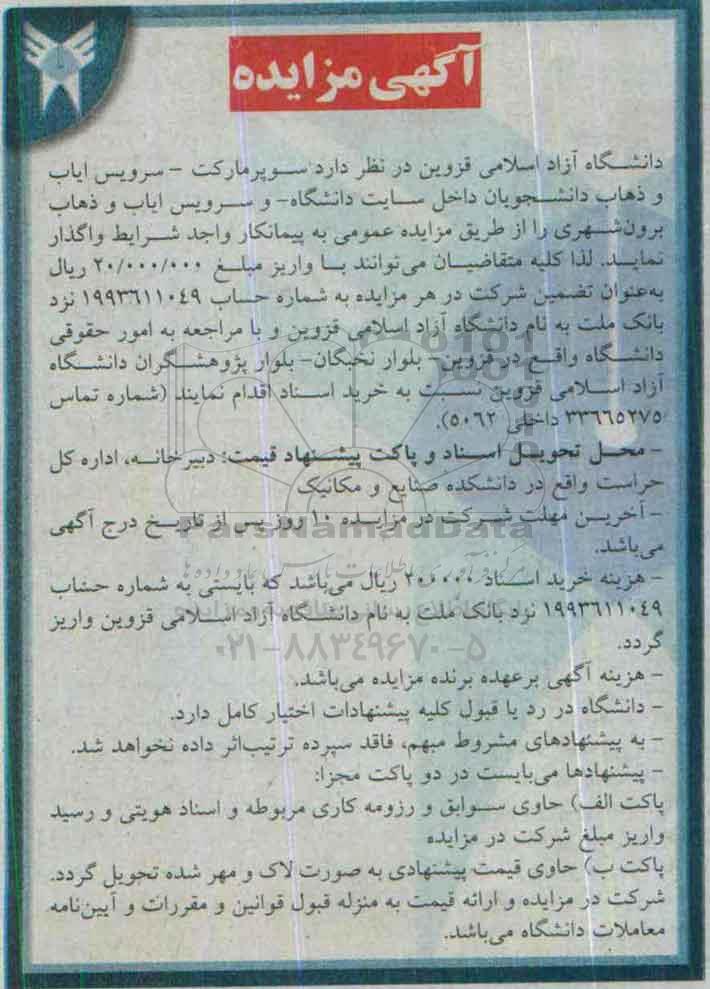 آگهی مزایده
دانشگاه آزاد اسلامی قزوین در نظر دارد سوپرمارکت - سرویس ایاب
و ذهاب دانشجویان داخل سایت دانشگاه- و سرویس ایاب و ذهاب
برون‌شهری را از طریق مزایده عمومی به پیمانکار واجد شرایط واگذار
نماید. لذا کلیه متقاضیان می‌توانند با واریز مبلغ ۲۰/۰۰۰/۰۰۰ ریال
به‌عنوان تضمین شرکت در هر مزایده به شماره حساب ۱۹۹۳۶۱۱۰۴۹ نزد
بانک ملت به نام دانشگاه آزاد اسلامی قزوین و با مراجعه به امور حقوقی
دانشگاه واقع در قزوین- بلوار نخبگان- بلوار پژوهشگران دانشگاه
آزاد اسلامی قزوین نسبت به خرید اسناد اقدام نمایند (شماره تماس
۳۳۶۶۵۲۷۵ داخلی ۵۰۶۲).
- محل تحویل اسناد و پاکت پیشنهاد قیمت: دبیرخانه، اداره کل
حراست واقع در دانشکده صنایع و مکانیک
- آخرین مهلت شرکت در مزایده ۱۰ روز پس از تاریخ درج آگهی
ParsNamadData
می‌باشد.
- هزینه خرید اسناد ۲۰۰۰۰۰ ریال می‌باشد که بایستی به شماره حساب
۱۹۹۳۶۱۱۰۴۹ نزد بانک ملت به نام دانشگاه آزاد اسلامی قزوین واریز
گردد.
۰۲۱-۸۸۳۴۹۶۷۰-۵
- هزینه آگهی برعهده برنده مزایده می‌باشد.
- دانشگاه در رد یا قبول کلیه پیشنهادات اختیار کامل دارد.
- به پیشنهادهای مشروط مبهم، فاقد سپرده ترتیب‌اثر داده نخواهد شد.
- پیشنهادها می‌بایست در دو پاکت مجزا:
پاکت الف) حاوی سوابق و رزومه کاری مربوطه و اسناد هویتی و رسید
واریز مبلغ شرکت در مزایده
پاکت ب) حاوی قیمت پیشنهادی به صورت لاک و مهر شده تحویل گردد.
شرکت در مزایده و ارائه قیمت به منزله قبول قوانین و مقررات و آیین‌نامه
معاملات دانشگاه می‌باشد.